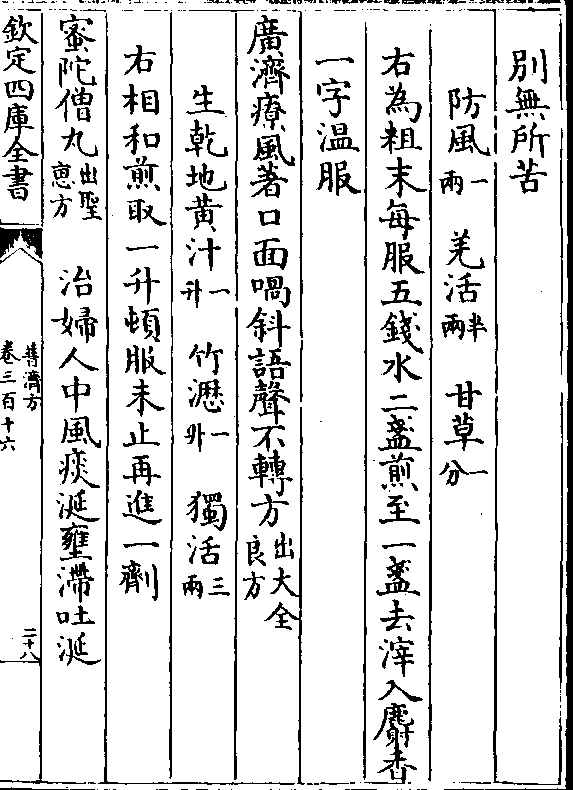 別無所苦
防風一兩 羌活半兩 甘草一分
右為粗末每服五錢水二盞煎至一盞去滓入麝香
一字温服
廣濟療風著口面喎斜語聲不轉方出大全良方
生乾地黄汁一升 竹瀝一升 獨活三兩
右相和煎取一升頓服未止再進一劑
蜜陀僧丸出聖恵方 治婦人中風痰涎壅滯吐涎
欽定四庫全書
普濟方
卷三百十六
二十八